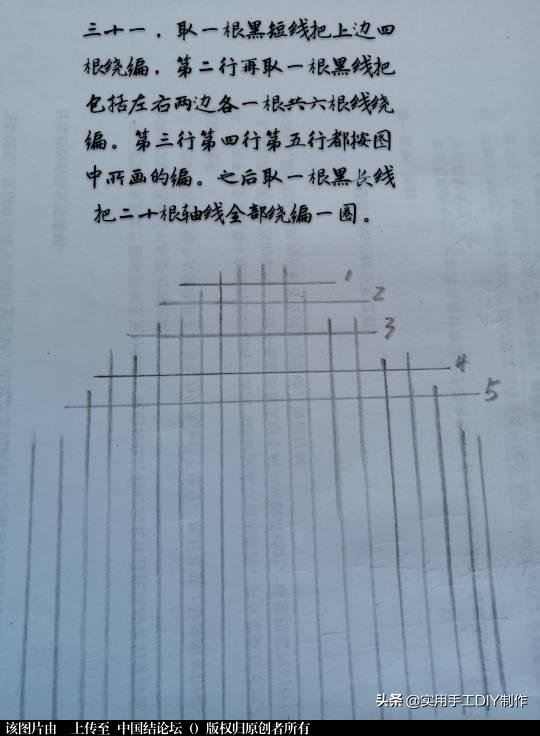 三十一．取一根黑短线把上边四
根绕编，第二行再取一根黑线把
包括左右两边各一根共六根线绕
编。第三行第四行第五行都按图
中所画的编。之后取一根黑长线
把二十根轴线全部绕编一圈。
1
2
3
4
5
头条 @实用手工DIY制作
该图片由 上传至 中国结论坛 () 版权归原创者所有